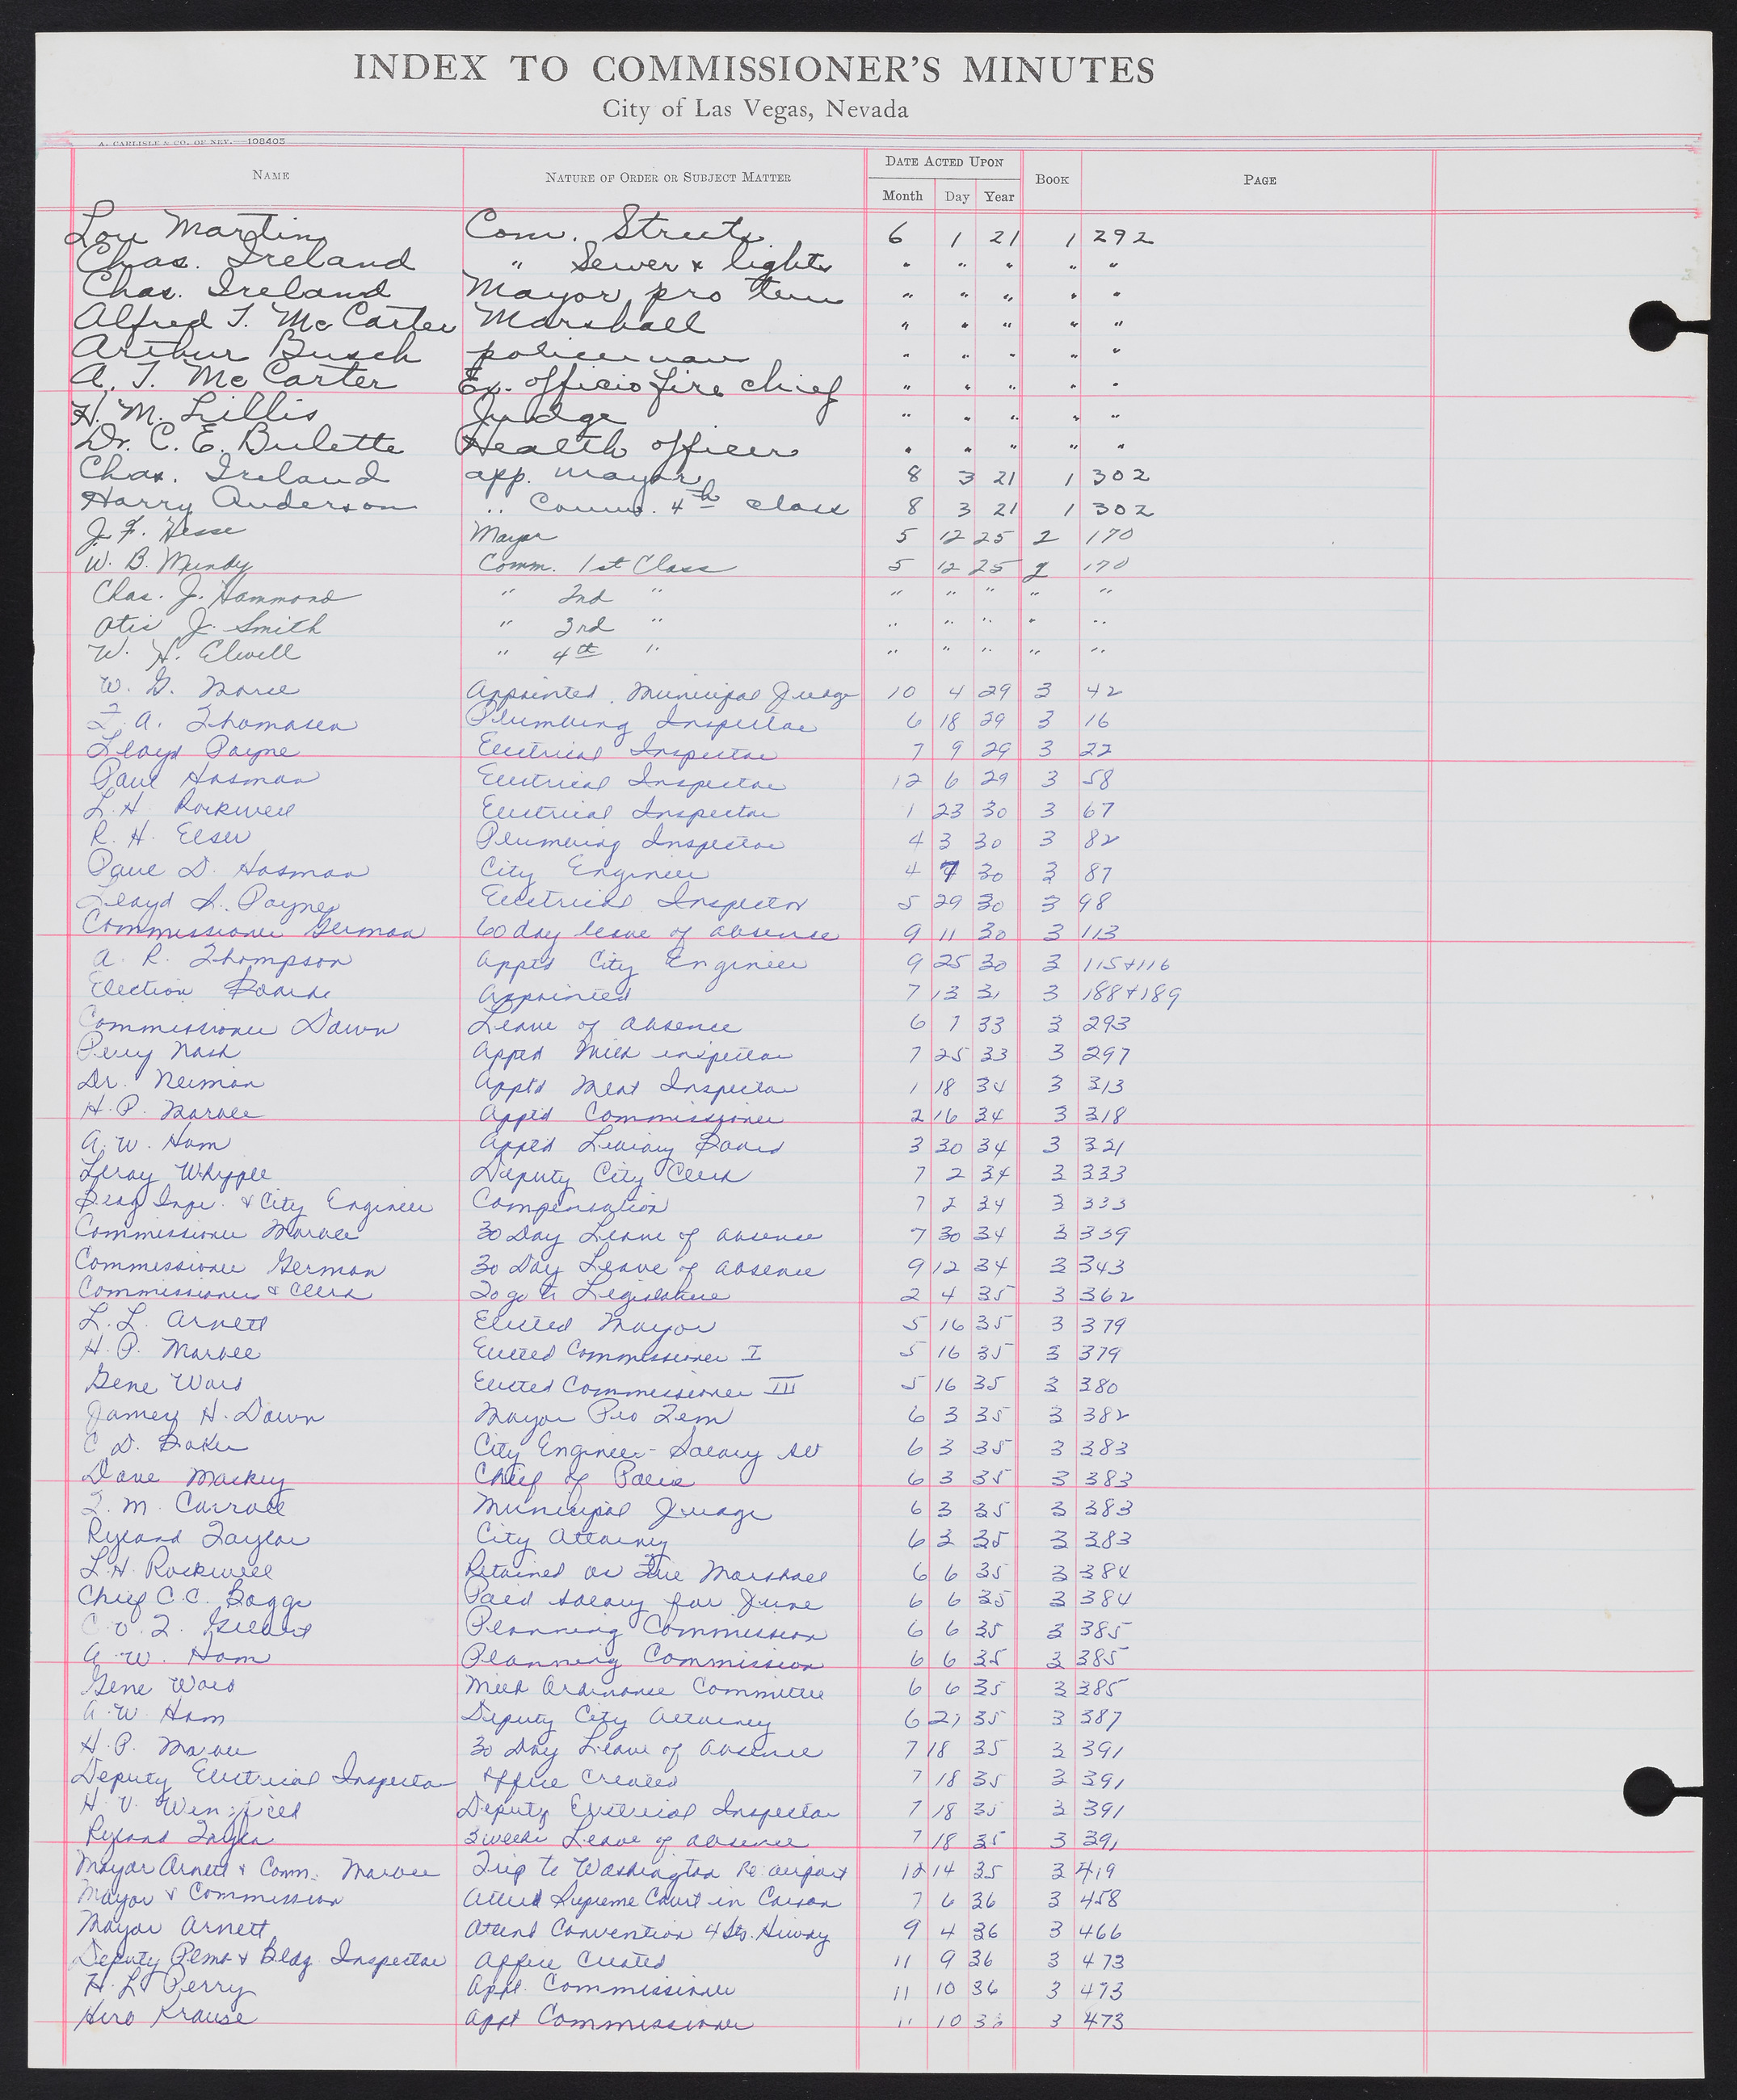 INDEX TO COMMISSIONER'S MINUTES
City of Las Vegas, Nevada
A. CARLISLE & CO. OF NEV.—108405
NAME NATURE OF ORDER OR SUBJECT MATTER DATE ACTED UPON Month Day Year BOOK PAGE
Lou Martin Com. Streets 6 1 21 1 292
Chas. Ireland " Sewer & lights " " " " "
Chas. Ireland Mayor pro tem " " " " "
Alfred T. McCarter Marshall " " " " "
Arthur Busch policeman " " " " "
A. T. McCarter Ex. officio fire chief " " " " "
H. M. Lillis Judge " " " " "
Dr. C. E. Bulette Health officer " " " " "
Chas. Ireland app. mayor 8 3 21 1 302
Harry Anderson " Comm. 4th class 8 3 21 1 302
J. F. Hesse Mayor 5 12 25 2 170
W. B. Mundy Comm. 1st Class 5 12 25 2 170
Chas. J. Hammond " 2nd " " " " " "
Otis J. Smith " 3rd " " " " " "
W. H. Elwell " 4th " " " " " "
W. G. Morse Appointed Municipal Judge 10 4 29 3 42
T. A. Thomason Plumbing Inspector 6 18 29 3 16
Lloyd Payne Electrical Inspector 7 9 29 3 22
Paul Hosman Electrical Inspector 12 6 29 3 58
L. H. Rockwell Electrical Inspector 1 23 30 3 67
R. H. Elser Plumbing Inspector 4 3 30 3 82
Paul D. Hosman City Engineer 4 7 30 3 87
Lloyd S. Payne Electrical Inspector 5 29 30 3 98
Commissioner German 60 day leave of absence 9 11 30 3 113
A. R. Thompson Apptd City Engineer 9 25 30 3 115+116
Election Boards Appointed 7 13 31 3 188+189
Commissioner Down Leave of absence 6 7 33 3 293
Percy Nash Apptd Milk inspector 7 25 33 3 297
Dr. Neiman Apptd Meat Inspector 1 18 34 3 313
H. P. Marble Apptd Commissioner 2 16 34 3 318
A. W. Ham Apptd Library Board 3 30 34 3 321
Leroy Whipple Deputy City Clerk 7 2 34 3 333
& City Engineer Compensation 7 2 34 3 333
Commissioner Marble 30 Day Leave of absence 7 30 34 3 339
Commissioner German 30 Day Leave of absence 9 12 34 3 343
Commissioners & Clerk To go to Legislature 2 4 35 3 362
L. L. Arnett Elected Mayor 5 16 35 3 379
H. P. Marble Elected Commissioner I 5 16 35 3 379
Gene Ward Elected Commissioner III 5 16 35 3 380
James H. Down Mayor Pro Tem 6 3 35 3 382
C D. Baker City Engineer - Salary set 6 3 35 3 383
Dave Mackey Chief of Police 6 3 35 3 383
T. M. Carroll Municipal Judge 6 3 35 3 383
Ryland Taylor City Attorney 6 3 35 3 383
L. H. Rockwell Retained as Fire Marshall 6 6 35 3 384
Chief C. C. Boggs Paid salary for June 6 6 35 3 384
C. V. T. Gilbert Planning Commission 6 6 35 3 385
A. W. Ham Planning Commission 6 6 35 3 385
Gene Ward Milk Ordinance Committee 6 6 35 3 385
A. W. Ham Deputy City Attorney 6 21 35 3 387
H. P. Marble 30 Day Leave of Absence 7 18 35 3 391
Deputy Electrical Inspector Office Created 7 18 35 3 391
H. V. Wingfield Deputy Electrical Inspector 7 18 35 3 391
Ryland Taylor 3 weeks Leave of absence 7 18 35 3 391
Mayor Arnett & Comm. Marble Trip to Washington Re: airport 12 14 35 3 419
Mayor & Commission Attend Supreme Court in Carson 7 6 36 3 458
Mayor Arnett Attend Convention 4 Sts. Hiway 9 4 36 3 466
Deputy Plmb & Bldg Inspector Office Created 11 9 36 3 473
H. L. Perry Appt. Commissioner 11 10 36 3 473
Hero Krause Appt Commissioner 11 10 36 3 473